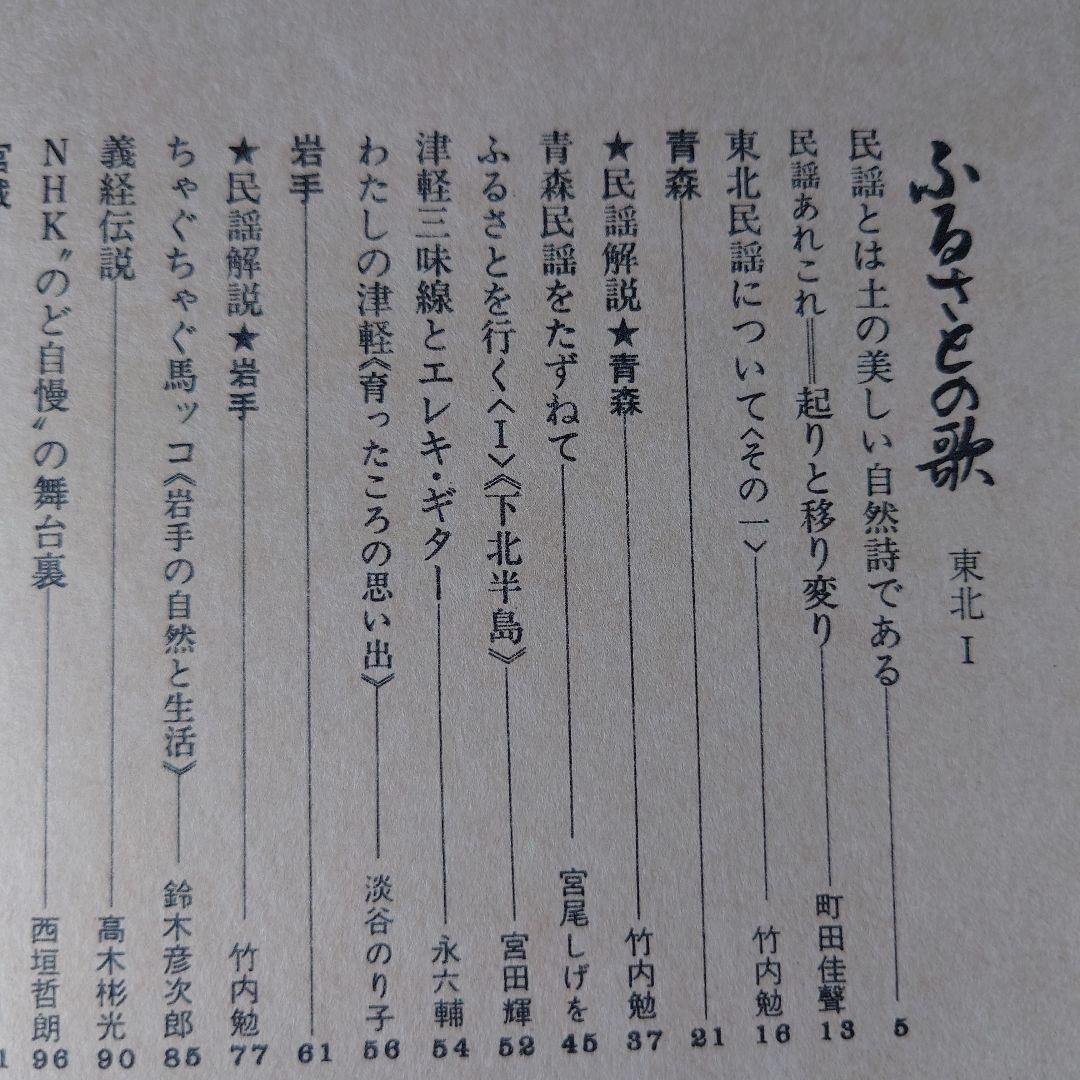 ふるさとの歌 東北Ⅰ
民謡とは土の美しい自然詩である 5
民謡あれこれ＝起りと移り変り 町田佳聲 13
東北民謡について〈その一〉 竹内勉 16
青森 21
★民謡解説★青森 竹内勉 37
青森民謡をたずねて 宮尾しげを 45
ふるさとを行く〈Ⅰ〉《下北半島》 宮田輝 52
津軽三味線とエレキ・ギター 永六輔 54
わたしの津軽《育ったころの思い出》 淡谷のり子 56
岩手 61
★民謡解説★岩手 竹内勉 77
ちゃぐちゃぐ馬ッコ《岩手の自然と生活》 鈴木彦次郎 85
義経伝説 高木彬光 90
NHK〝のど自慢〟の舞台裏 西垣哲朗 96
宮城